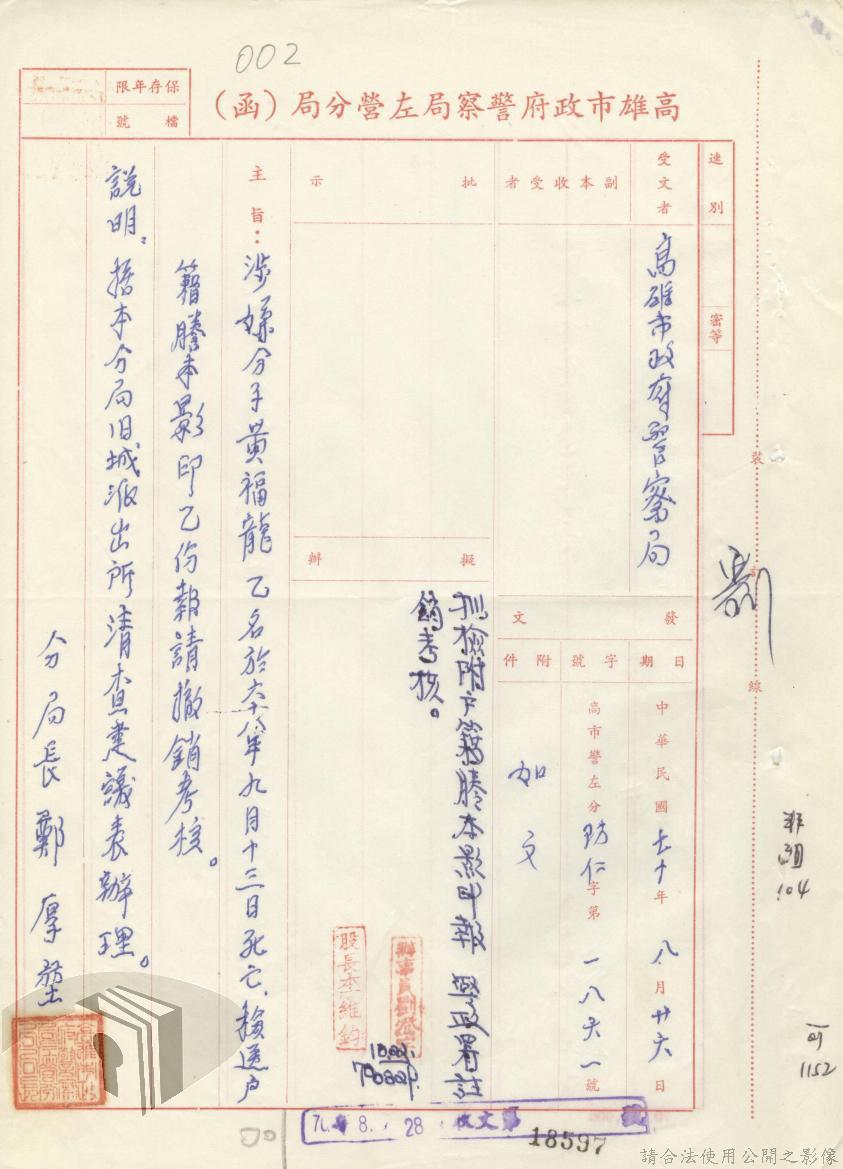 002
保存年限
檔號
高雄市政府警察局左營分局（函）
速別
密等
受文者
高雄市政府警察局
副本收受者
批示
擬辦
擬檢附戶籍謄本影印報 警政署註
銷考核。
發文
日期
中華民國七十年八月廿六日
字號
高市警左分防仁字第一八六一號
附件
如文
主旨：涉嫌分子黃福龍乙名於六十八年九月十三日死亡，檢送戶
籍謄本影印乙份報請撤銷考核。
說明：據本分局旧城派出所清查建議表辦理。
分局長鄭厚堃
股長李維鈞
裝訂線
劉
104
1152
70. 8. 28
收文第18597號
請合法使用公開之影像